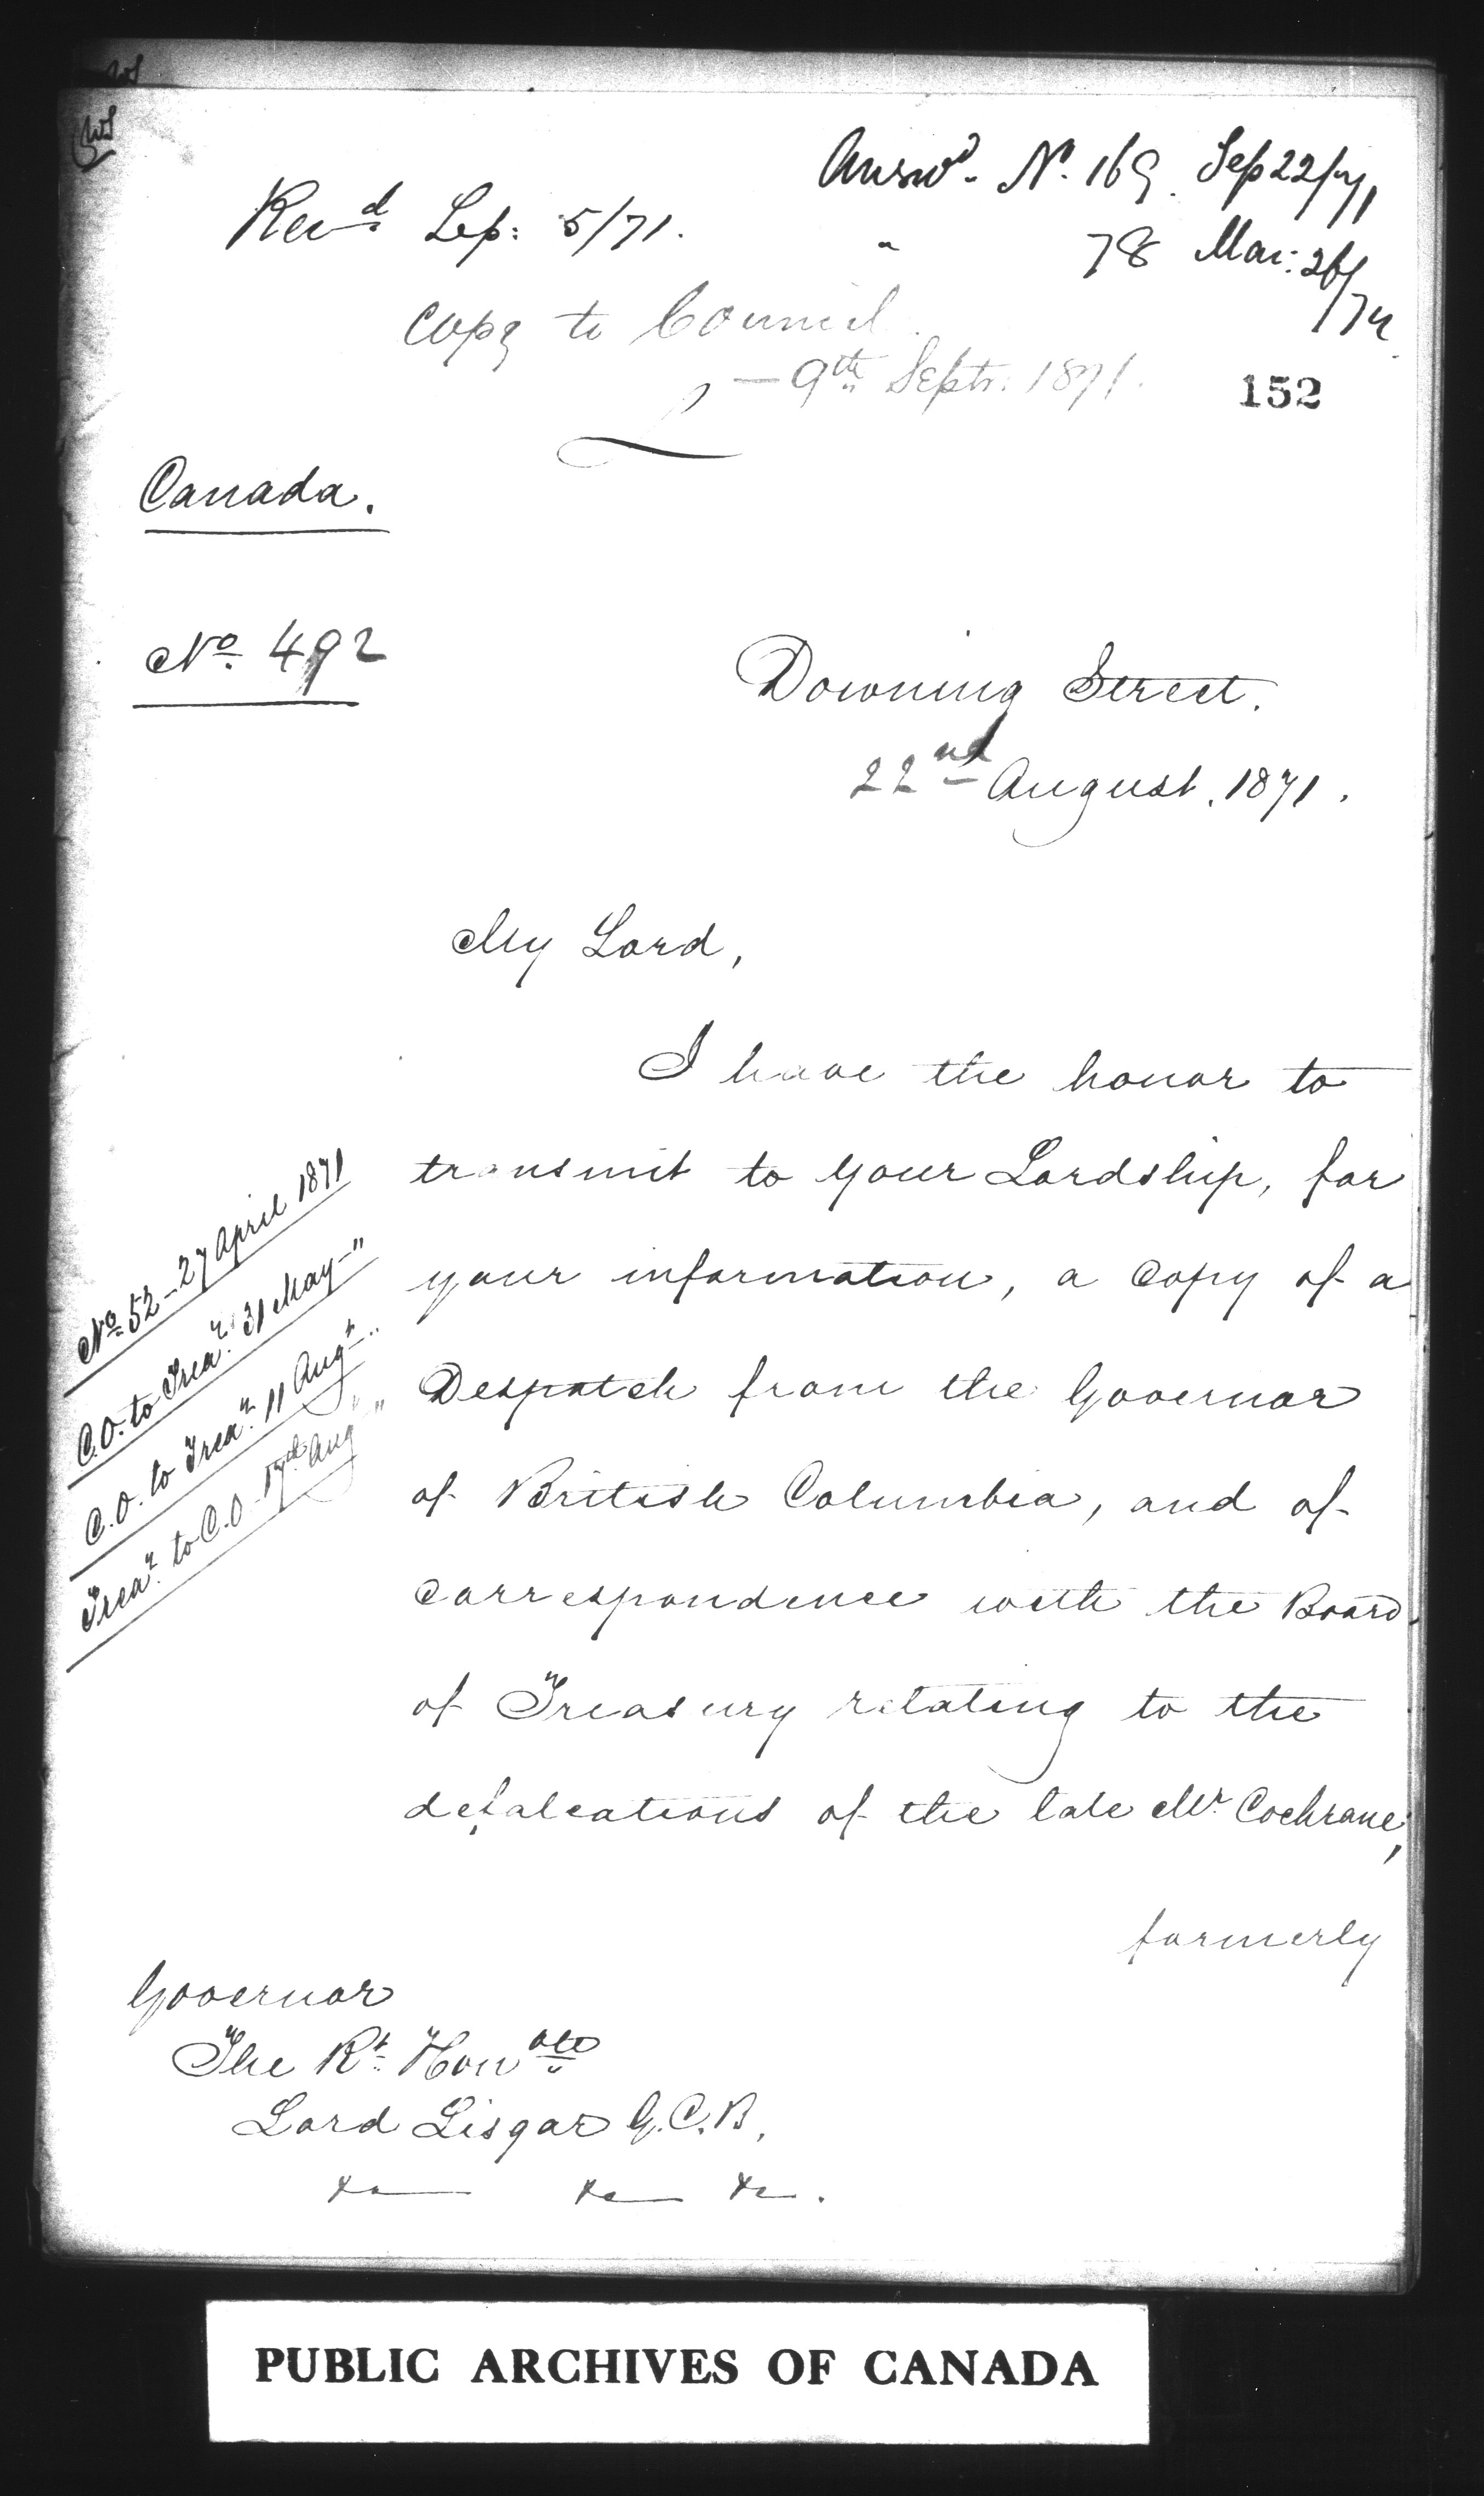 Answd. No. 169. Sep 22/71
Recd. Sep: 5/71.
" 78 Mar: 26/72
Copy to Council.
— 9th Septr. 1871.
152
Canada.
No. 492
Downing Street.
22nd August. 1871.
My Lord,
I have the honor to
transmit to your Lordship, for
your information, a copy of a
Despatch from the Governor
of British Columbia, and of
correspondence with the Board
of Treasury relating to the
defalcations of the late Mr. Cochrane,
formerly
No. 52 – 27 April 1871
C.O. to Treay. 31 May – "
C.O. to Treay. 11 Augt – "
Treay. to C.O – 17th Aug "
Governor
The Rt. Honble
Lord Lisgar G.C.B.
&c &c &c.
PUBLIC ARCHIVES OF CANADA